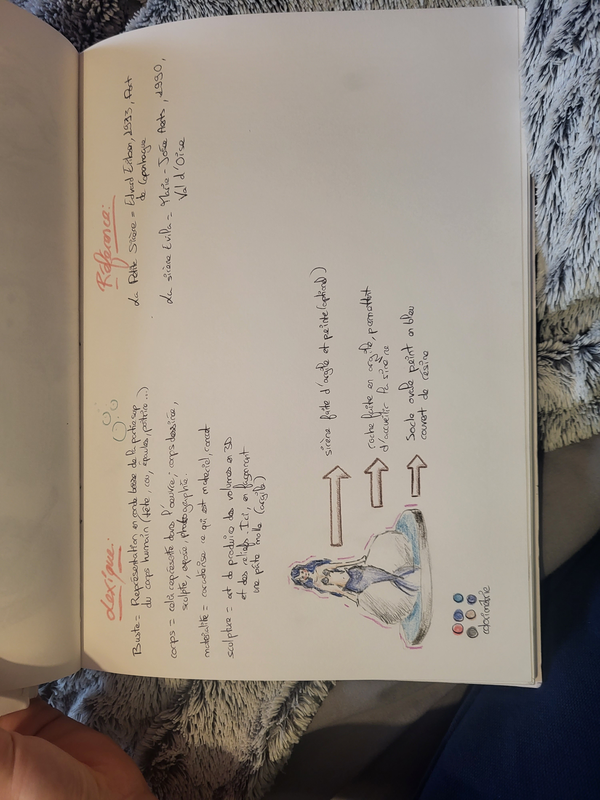 Lexique:
Buste = Représentation en ronde bosse de la partie sup
du corps humain (tête, cou, épaules, poitrine...)
corps = celà représenté dans l'œuvre; corps dessiné,
sculpté, exposé, photographié.
matérialité = caractérise ce qui est matériel, concret
sculpture = art de produire des volumes en 3D
et des reliefs. Ici, en façonnant
une pâte molle (argile)
Référence:
La Petite Sirène = Edvard Eriksen, 1913, Port
de Copenhague
La sirène Evila = Marie-Josée Aerts, 1990,
Val d'Oise
sirène faite d'argile et peinte (optionel)
roche faite en argile, permettant
d'accueillir la sirène
Socle ovale peint en bleu
couvert de résine
colorimétrie